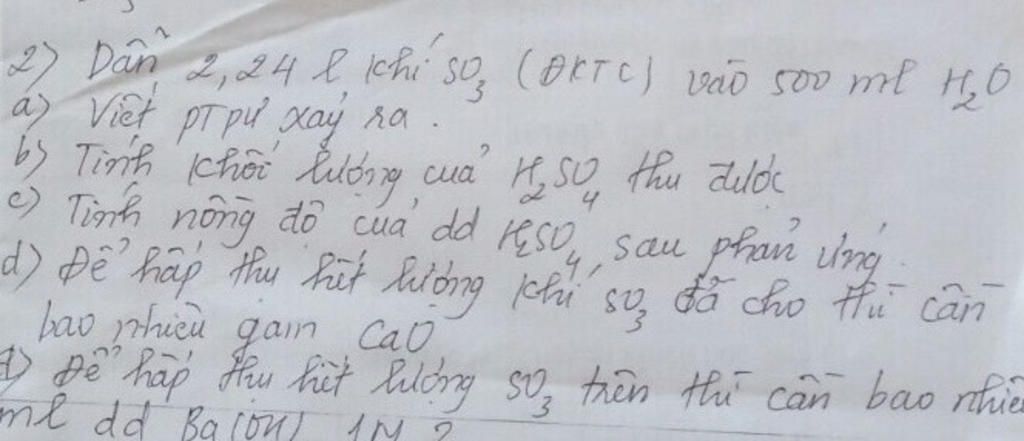 2) Dẫn 2,24 l khí SO3 (ĐKTC) vào 500 ml H2O
a) Viết PTPƯ xảy ra.
b) Tính khối lượng của H2SO4 thu được
c) Tính nồng độ của dd H2SO4 sau phản ứng.
d) Để hấp thụ hết lượng khí SO3 đã cho thì cần
bao nhiêu gam CaO
đ) Để hấp thụ hết lượng SO3 trên thì cần bao nhiêu
ml dd Ba(OH) 1M ?